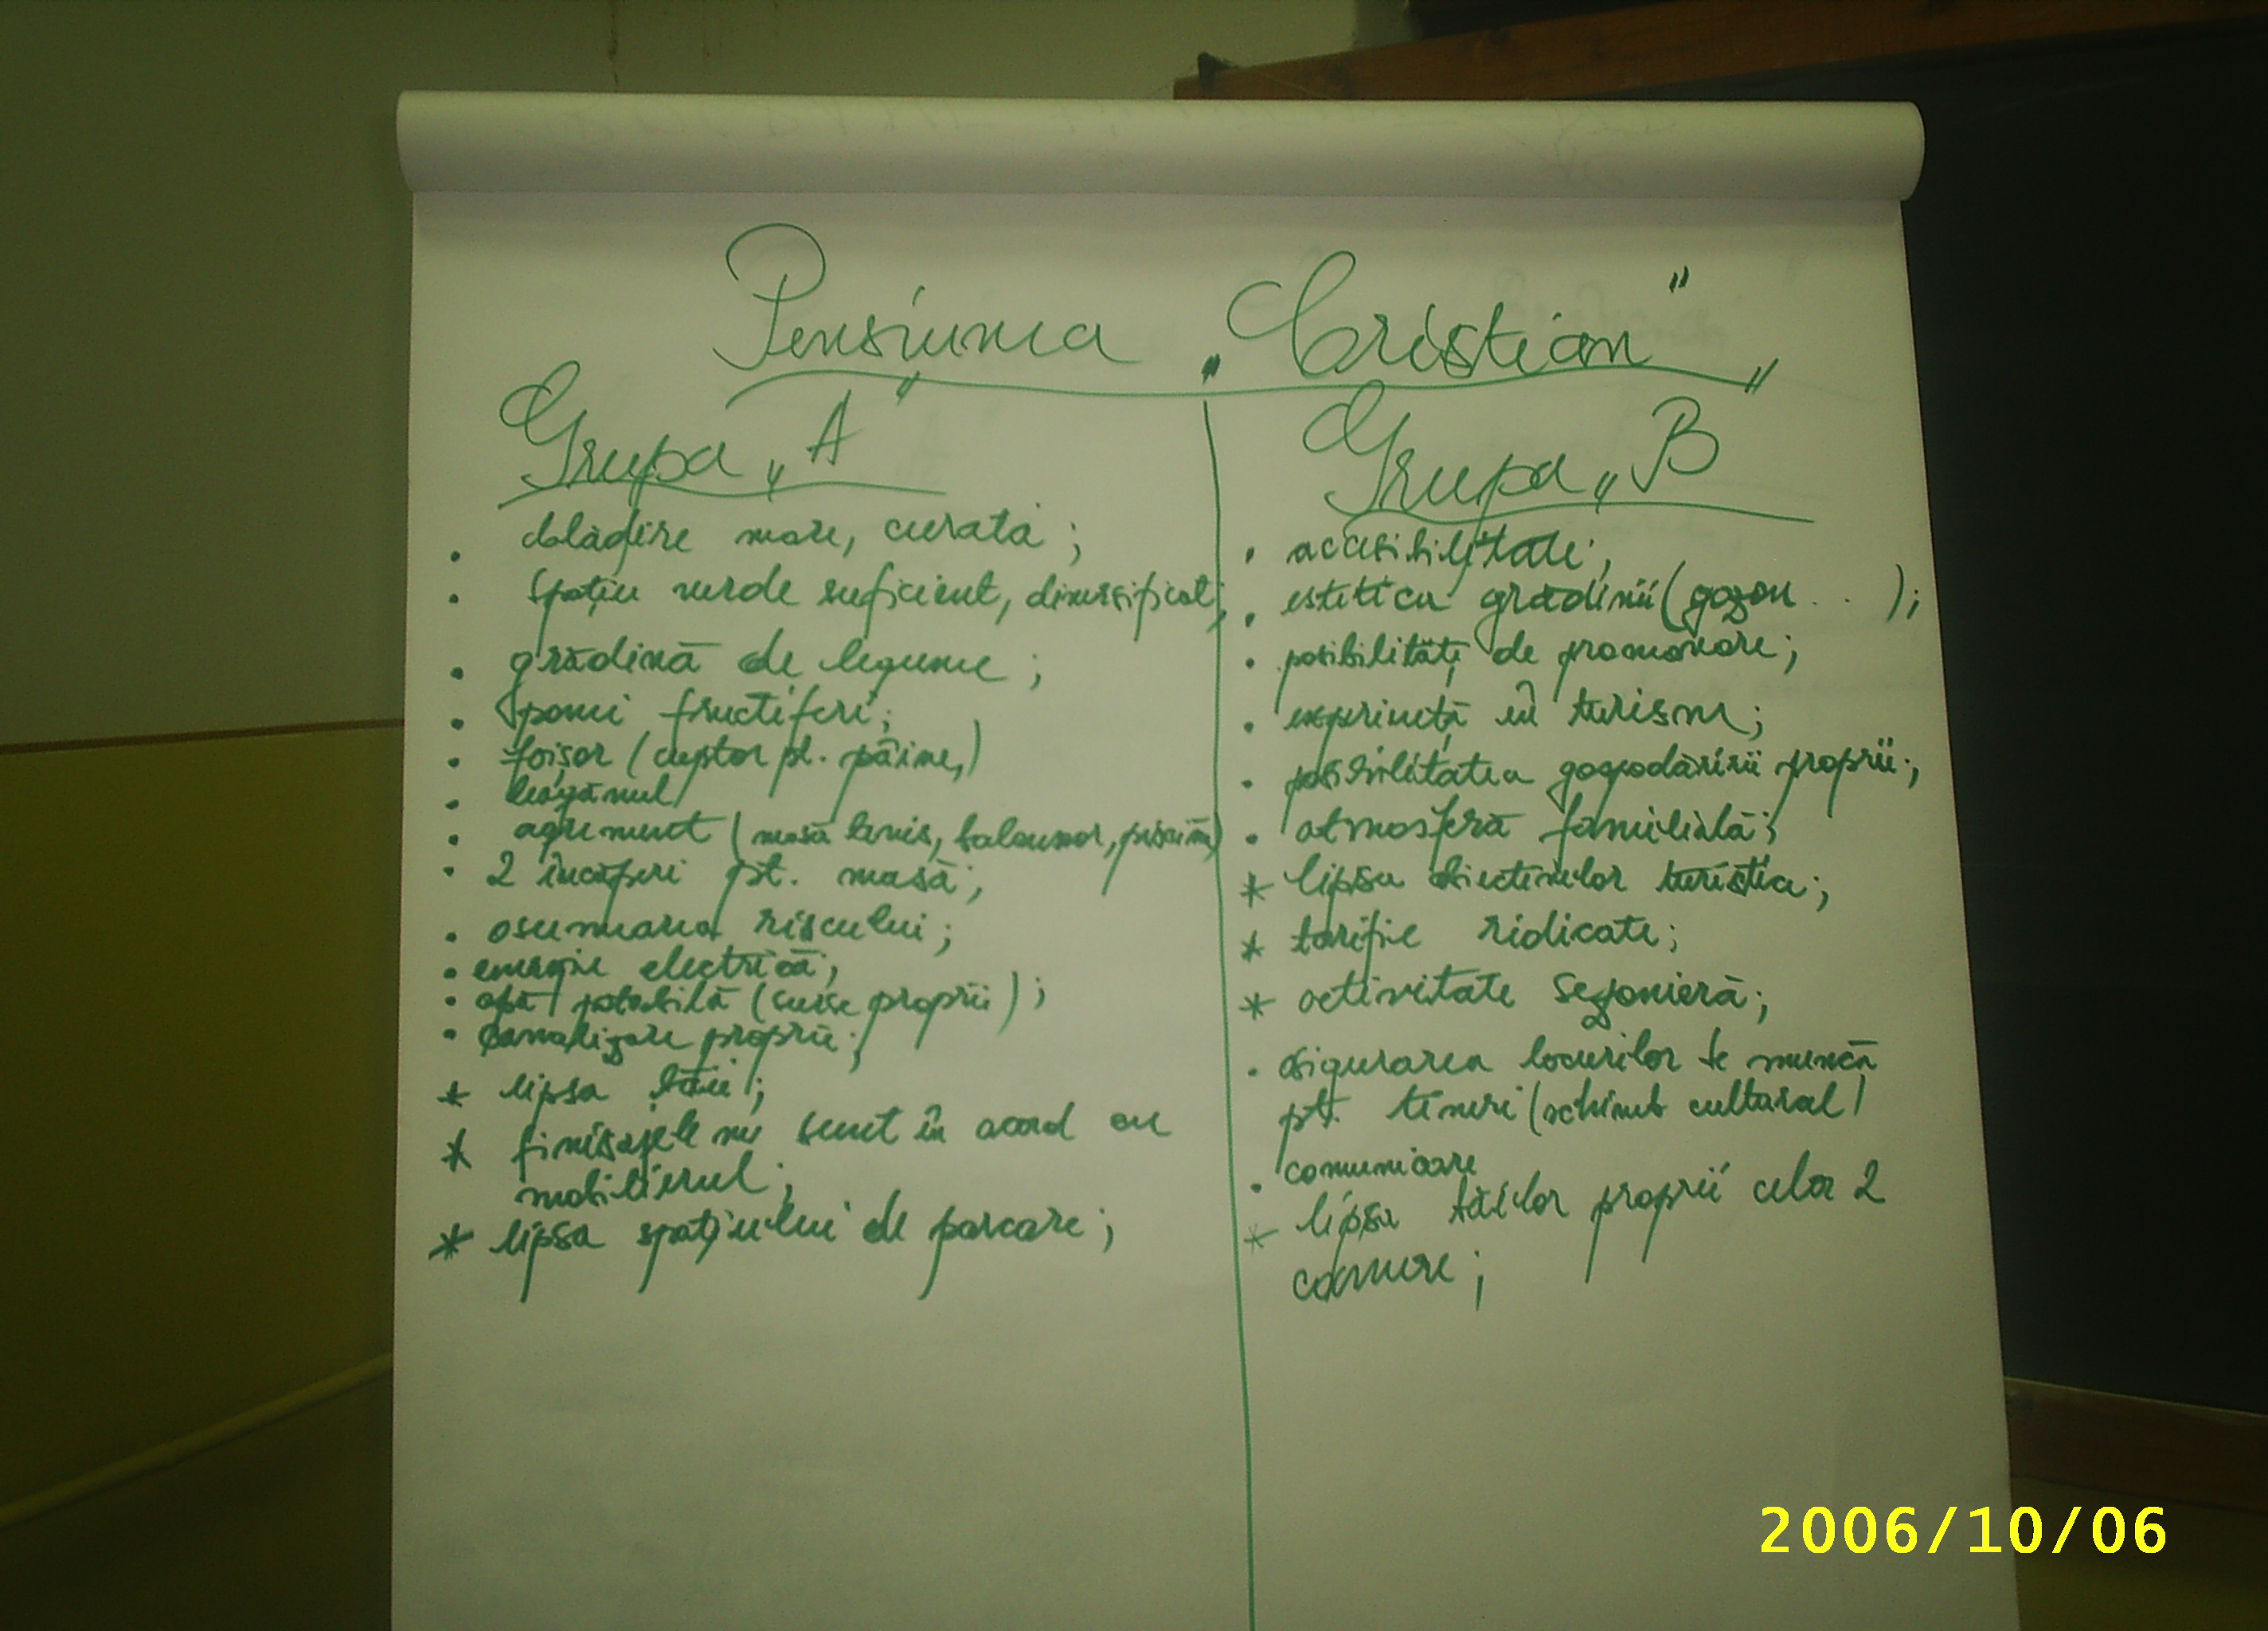 Pensiunea „Cristian"
Grupa „A"
• clădire mare, curată;
• spațiu verde suficient, diversificat;
• grădină de legume;
• pomi fructiferi;
• foișor (cuptor pt. pâine,)
• leagănul
• agrement (masă tenis, balansoar, piscină)
• 2 încăperi pt. masă;
• asumarea riscului;
• energie electrică;
• apă potabilă (surse proprii);
• canalizare proprie;
* lipsa tăii;
* finisajele nu sunt în acord cu
mobilierul;
* lipsa spațiului de parcare;
Grupa „B
• accesibilitate;
• estetica grădinii (gazon . . );
• posibilități de promovare;
• experiență în turism;
• posibilitatea gospodăririi proprii;
• atmosferă familială;
* lipsa obiectivelor turistice;
* tarife ridicate;
* activitate sezonieră;
• asigurarea locurilor de muncă
pt. tineri (schimb cultural)
• comunicare
* lipsa băilor proprii celor 2
camere;
2006/10/06